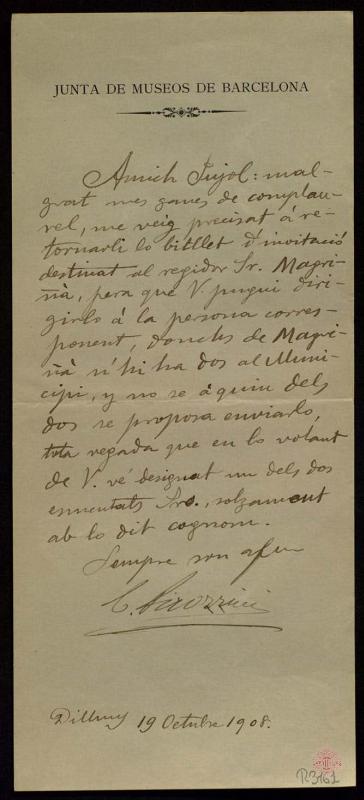 JUNTA DE MUSEOS DE BARCELONA
Amich Pujol: mal-
grat mes ganes de complau-
rel, me veig precisat á re-
tornarli lo bitllet d'invitació
destinat al regidor Sr. Magri-
ñà, pera que V. pugui diri-
girlo á la persona corres-
ponent, donchs de Magri-
ñà n'hi ha dos al Muni-
cipi, y no se á quin dels
dos se proposa enviarlo,
tota vegada que en lo volant
de V. vé designat un dels dos
esmentats Srs., solzament
ab lo dit cognom.
Sempre son afm
C. Pirozzini
Dilluns 19 Octubre 1908.
R3161